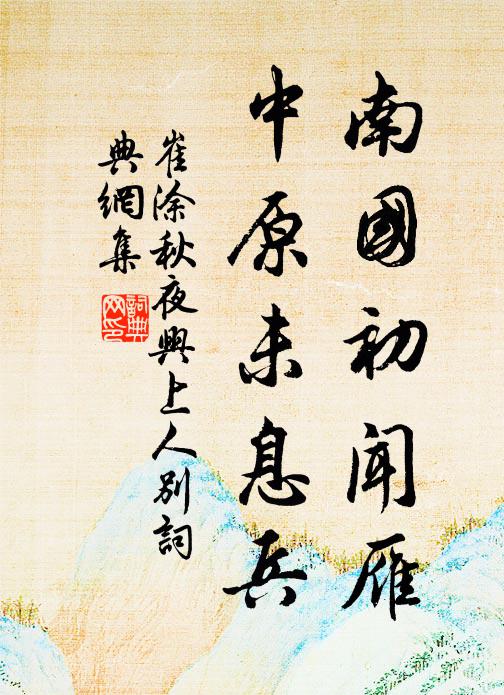 南國初聞雁
中原未息兵
崔涂秋夜興上人別詞
典網集
詞典網印